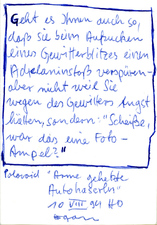 Geht es Ihnen auch so,
daß Sie beim Aufzucken
eines Gewitterblitzes einen
Adrenalinstoß verspüren –
aber nicht weil Sie
wegen des Gewitters Angst
hätten, sondern: "Scheiße,
war das eine Foto-
Ampel?"
Polaroid "Arme gehetzte
Autohaserln"
10 VIII 94 HO